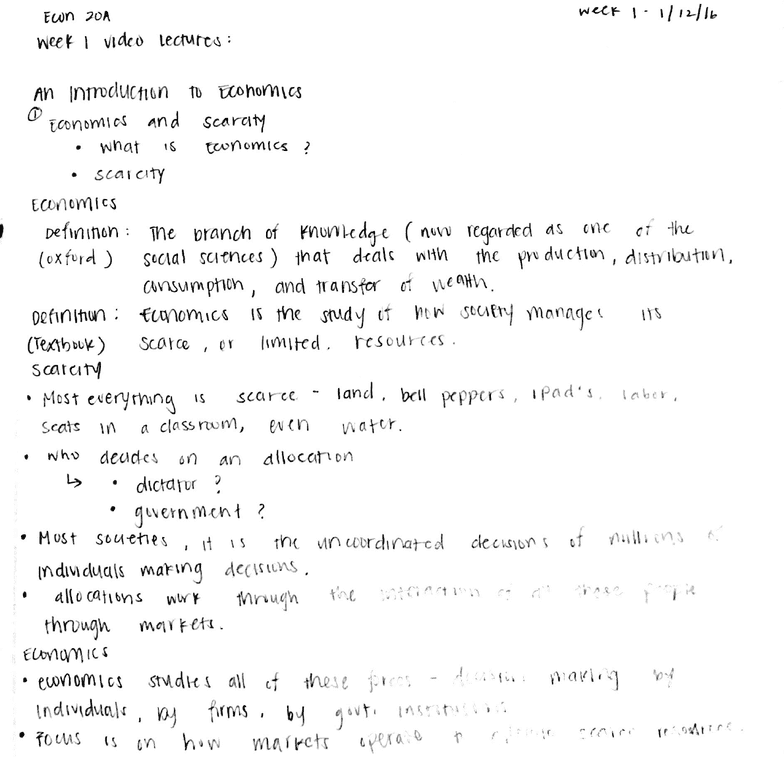 Econ 20A
Week 1 - 1/12/16
Week 1 video lectures:
An Introduction to Economics
① Economics and scarcity
• what is Economics?
• scarcity
Economics
Definition: The branch of knowledge (now regarded as one of the
(oxford) social sciences) that deals with the production, distribution,
consumption, and transfer of wealth.
Definition: Economics is the study of how society manages its
(Textbook) scarce, or limited, resources.
Scarcity
• Most everything is scarce - land, bell peppers, ipad's, labor,
seats in a classroom, even water.
• who decides on an allocation
↳ • dictator?
• government?
• Most societies, it is the uncoordinated decisions of millions of
individuals making decisions.
• allocations work through the interaction of all these people
through markets.
Economics
• economics studies all of these forces - decision making by
individuals, by firms, by govt. institutions
• Focus is on how markets operate to scarce resources.